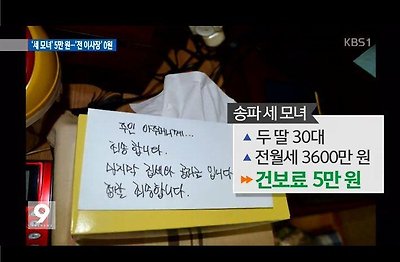 '세 모녀' 5만 원…'전 이사장' 0원
KBS1
주인 아주머니께...
죄송합니다.
마지막 집세와 공과금 입니다.
정말 죄송합니다.
송파 세 모녀
▲ 두 딸 30대
▲ 전월세 3600만 원
건보료 5만 원
9